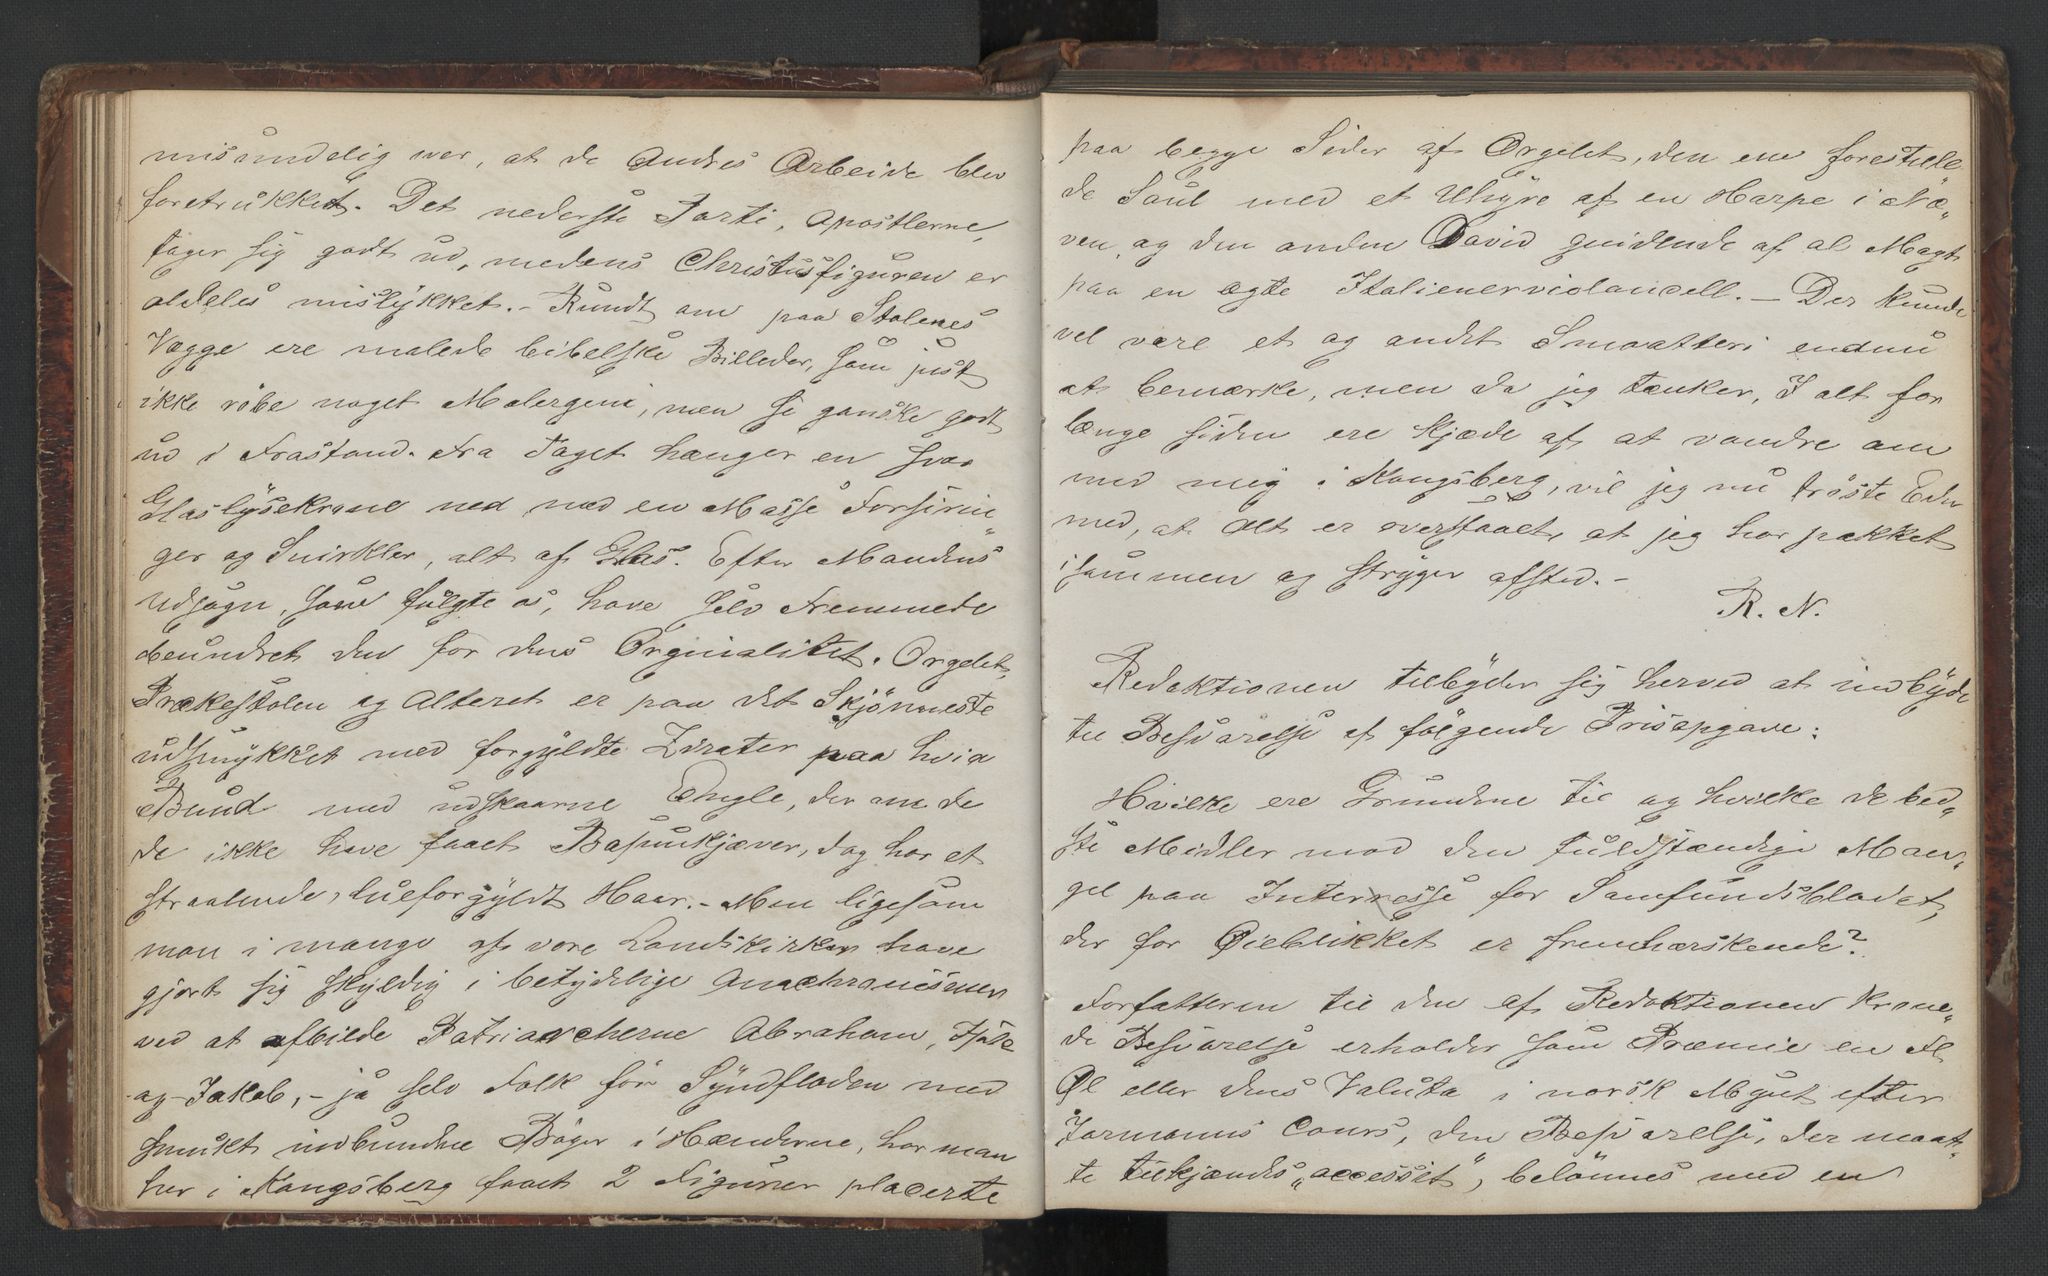 misundelig over, at de Andres Arbeide blev
foretrukket. Det nederste Parti, Apostlerne,
tager sig godt ud, medens Christusfiguren er
aldeles mislykket. – Rundt om paa Stolenes
Vægge ere malede bibelske Billeder, som just
ikke röbe noget Malergeni, men se ganske godt
ud i Frastand. Fra Taget hænger en svær
Glaslysekrone ned med en Masse Forsirin„
ger og Snirkler, alt af Glas. Efter Mandens
Udsagn, som fulgte os, have selv Fremmede
beundret den for dens Orginalitet. Orgelet,
Prækestolen og Alteret er paa det Skjönneste
udsmykket med forgyldte Zirater paa hvid
Bund med udskaarne Engle, der om de
de ikke have faaet Basunkjæver, dog har et
straalende, lueforgyldt Haar. – Men ligesom
man i mange af vore Landskirker have
gjort sig skyldig i betydelige Anachronismer
ved at afbilde Patriarcherne Abraham, Isak
og Jakob, – ja selv Folk før Syndfloden med
smukt indbundne Bøger i Hænderne, har man
her i Kongsberg faaet 2 Figurer placerte
paa begge Sider af Orgelet, den ene forestille
de Saul med et Uhyre af en Harpe i Næ„
ven, og den anden David gnidende af al Magt
paa en ægte Italienervioloncell. – Der kunde
vel være et og andet Smaatteri endnu
at bemærke, men da jeg tænker, I alt for
længe siden ere kjede af at vandre om
med mig i Kongsberg, vil jeg nu trøste Eder
med, at Alt er overstaaet, at jeg har pakket
isammen og stryger afsted. –
R. N.
Redaktionen tilbyder sig herved at indbyde
til Besvarelse af følgende Prisopgave:
Hvilke ere Grundene til og hvilke de bed„
ste Midler mod den fuldstændige Man„
gel paa Interresse for Samfundsbladet,
der for Øieblikket er fremherskende?
Forfatteren til den af Redaktionen krone„
de Besvarelse erholder som Præmie en Fl.
Øl eller dens Valuta i norsk Mynt efter
Jormanns Cours, den Besvarelse, der maat„
te tilkjendes „accessit“, belönnes med en